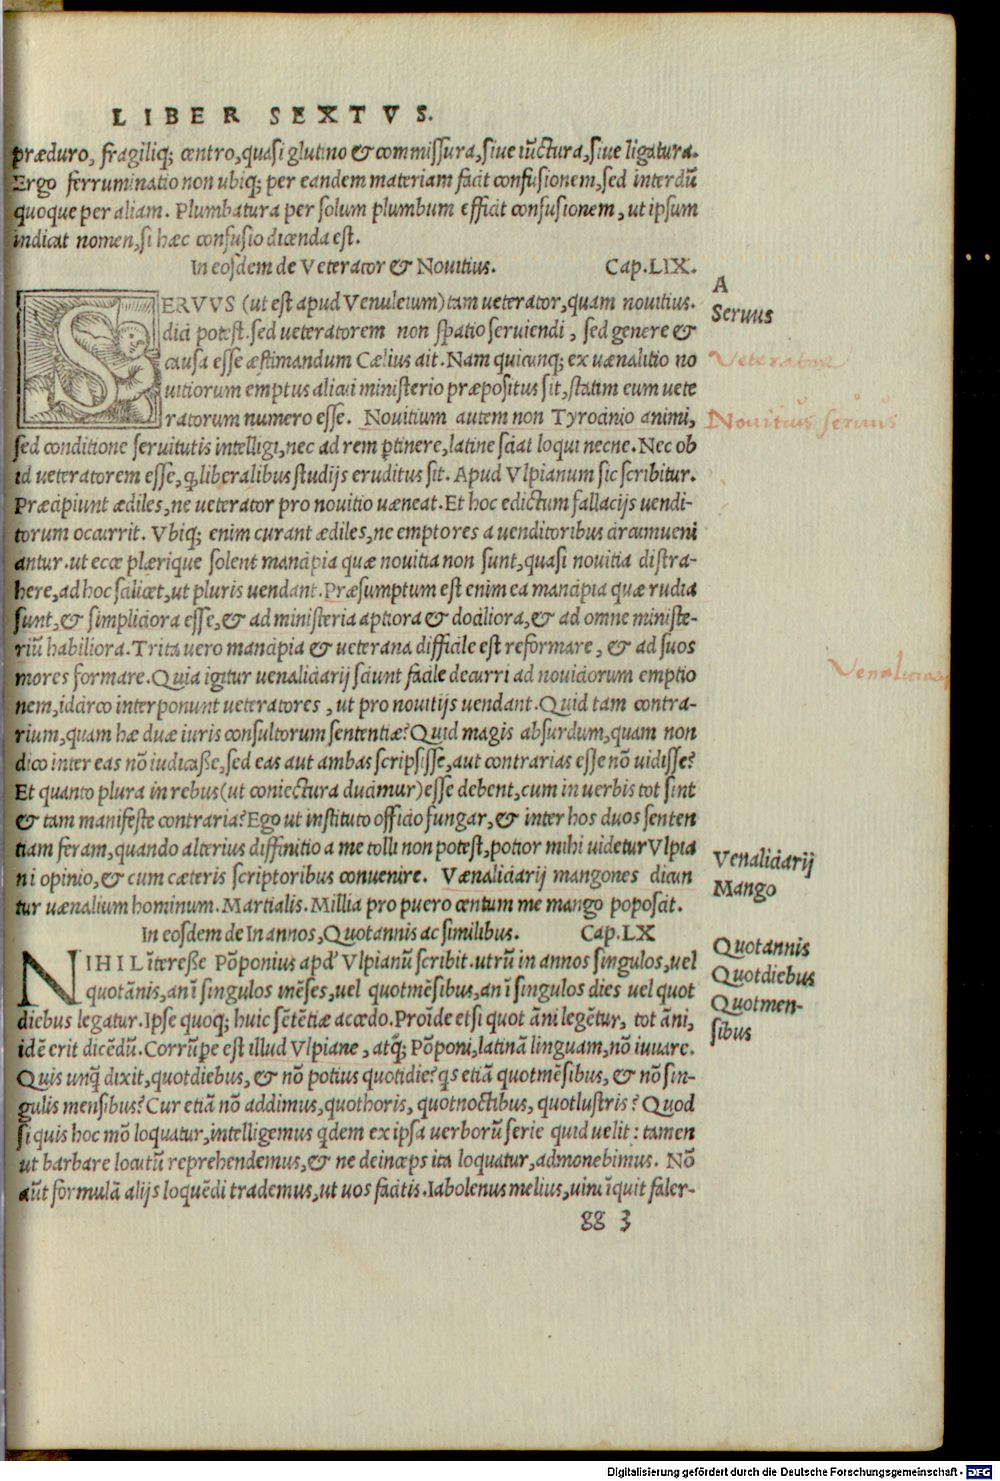 LIBER SEXTVS.
præduro, fragiliq; centro, quasi glutino & commissura, siue iūctura, siue ligatura.
Ergo ferruminatio non ubiq; per eandem materiam facit confusionem, sed interdū
quoque per aliam. Plumbatura per solum plumbum efficit confusionem, ut ipsum
indicat nomen, si hæc confusio dicenda est.
In eosdem de Veterator & Nouitius. Cap. LIX.
SERVVS (ut est apud Venuleium) tam ueterator, quam nouitius.
dici potest. sed ueteratorem non spatio seruiendi, sed genere &
causa esse æstimandum Cælius ait. Nam quicunq; ex uænalitio no
uitiorum emptus alicui ministerio præpositus sit, statim eum uete
ratorum numero esse. Nouitium autem non Tyrocinio animi,
sed conditione seruitutis intelligi, nec ad rem ꝑtinere, latine sciat loqui necne. Nec ob
id ueteratorem esse, ꝙ liberalibus studijs eruditus sit. Apud Vlpianum sic scribitur.
Præcipiunt ædiles, ne ueterator pro nouitio uæneat. Et hoc edictum fallacijs uendi-
torum occurrit. Vbiq; enim curant ædiles, ne emptores a uenditoribus circumueni
antur. ut ecce plærique solent mancipia quæ nouitia non sunt, quasi nouitia distra-
here, ad hoc scilicet, ut pluris uendant. Præsumptum est enim ea mancipia quæ rudia
sunt, & simpliciora esse, & ad ministeria aptiora & dociliora, & ad omne ministe-
riū habiliora. Trita uero mancipia & ueterana difficile est reformare, & ad suos
mores formare. Quia igitur uenaliciarij sciunt facile decurri ad nouiciorum emptio
nem, idcirco interponunt ueteratores, ut pro nouitijs uendant. Quid tam contra-
rium, quam hæ duæ iuris consultorum sententiæ? Quid magis absurdum, quam non
dico inter eas nō iudicaße, sed eas aut ambas scripsisse, aut contrarias esse nō uidisse?
Et quanto plura in rebus (ut coniectura ducimur) esse debent, cum in uerbis tot sint
& tam manifeste contraria? Ego ut instituto officio fungar, & inter hos duos senten
tiam feram, quando alterius diffinitio a me tolli non potest, potior mihi uidetur Vlpia
ni opinio, & cum cæteris scriptoribus conuenire. Vænaliciarij mangones dicun
tur uænalium hominum. Martialis. Millia pro puero centum me mango poposcit.
In eosdem de In annos, Quotannis ac similibus. Cap. LX
NIHIL ītereße Pōponius apd' Vlpianū scribit. utrū in annos singulos, uel
quotānis, an ī singulos mēses, uel quotmēsibus, an ī singulos dies uel quot
diebus legatur. Ipse quoq; huic sētētiæ accedo. Proīde etsi quot āni legētur, tot āni,
idē erit dicēdū. Corrūpe est illud Vlpiane, atq; Pōponi, latinā linguam, nō iuuare.
Quis unq̄ dixit, quotdiebus, & nō potius quotidie? qs etiā quotmēsibus, & nō sin-
gulis mensibus? Cur etiā nō addimus, quothoris, quotnoctibus, quotlustris? Quod
si quis hoc mō loquatur, intelligemus qdem ex ipsa uerborū serie quid uelit: tamen
ut barbare locutū reprehendemus, & ne deinceps ita loquatur, admonebimus. Nō
aūt formulā alijs loquēdi trademus, ut uos facitis. Iabolenus melius, uini īquit faler-
gg 3
A
Seruus
Veterator
Nouitius seruus
Venaliciarij
Venaliciarij
Mango
Quotannis
Quotdiebus
Quotmen-
sibus
Digitalisierung gefördert durch die Deutsche Forschungsgemeinschaft - DFG